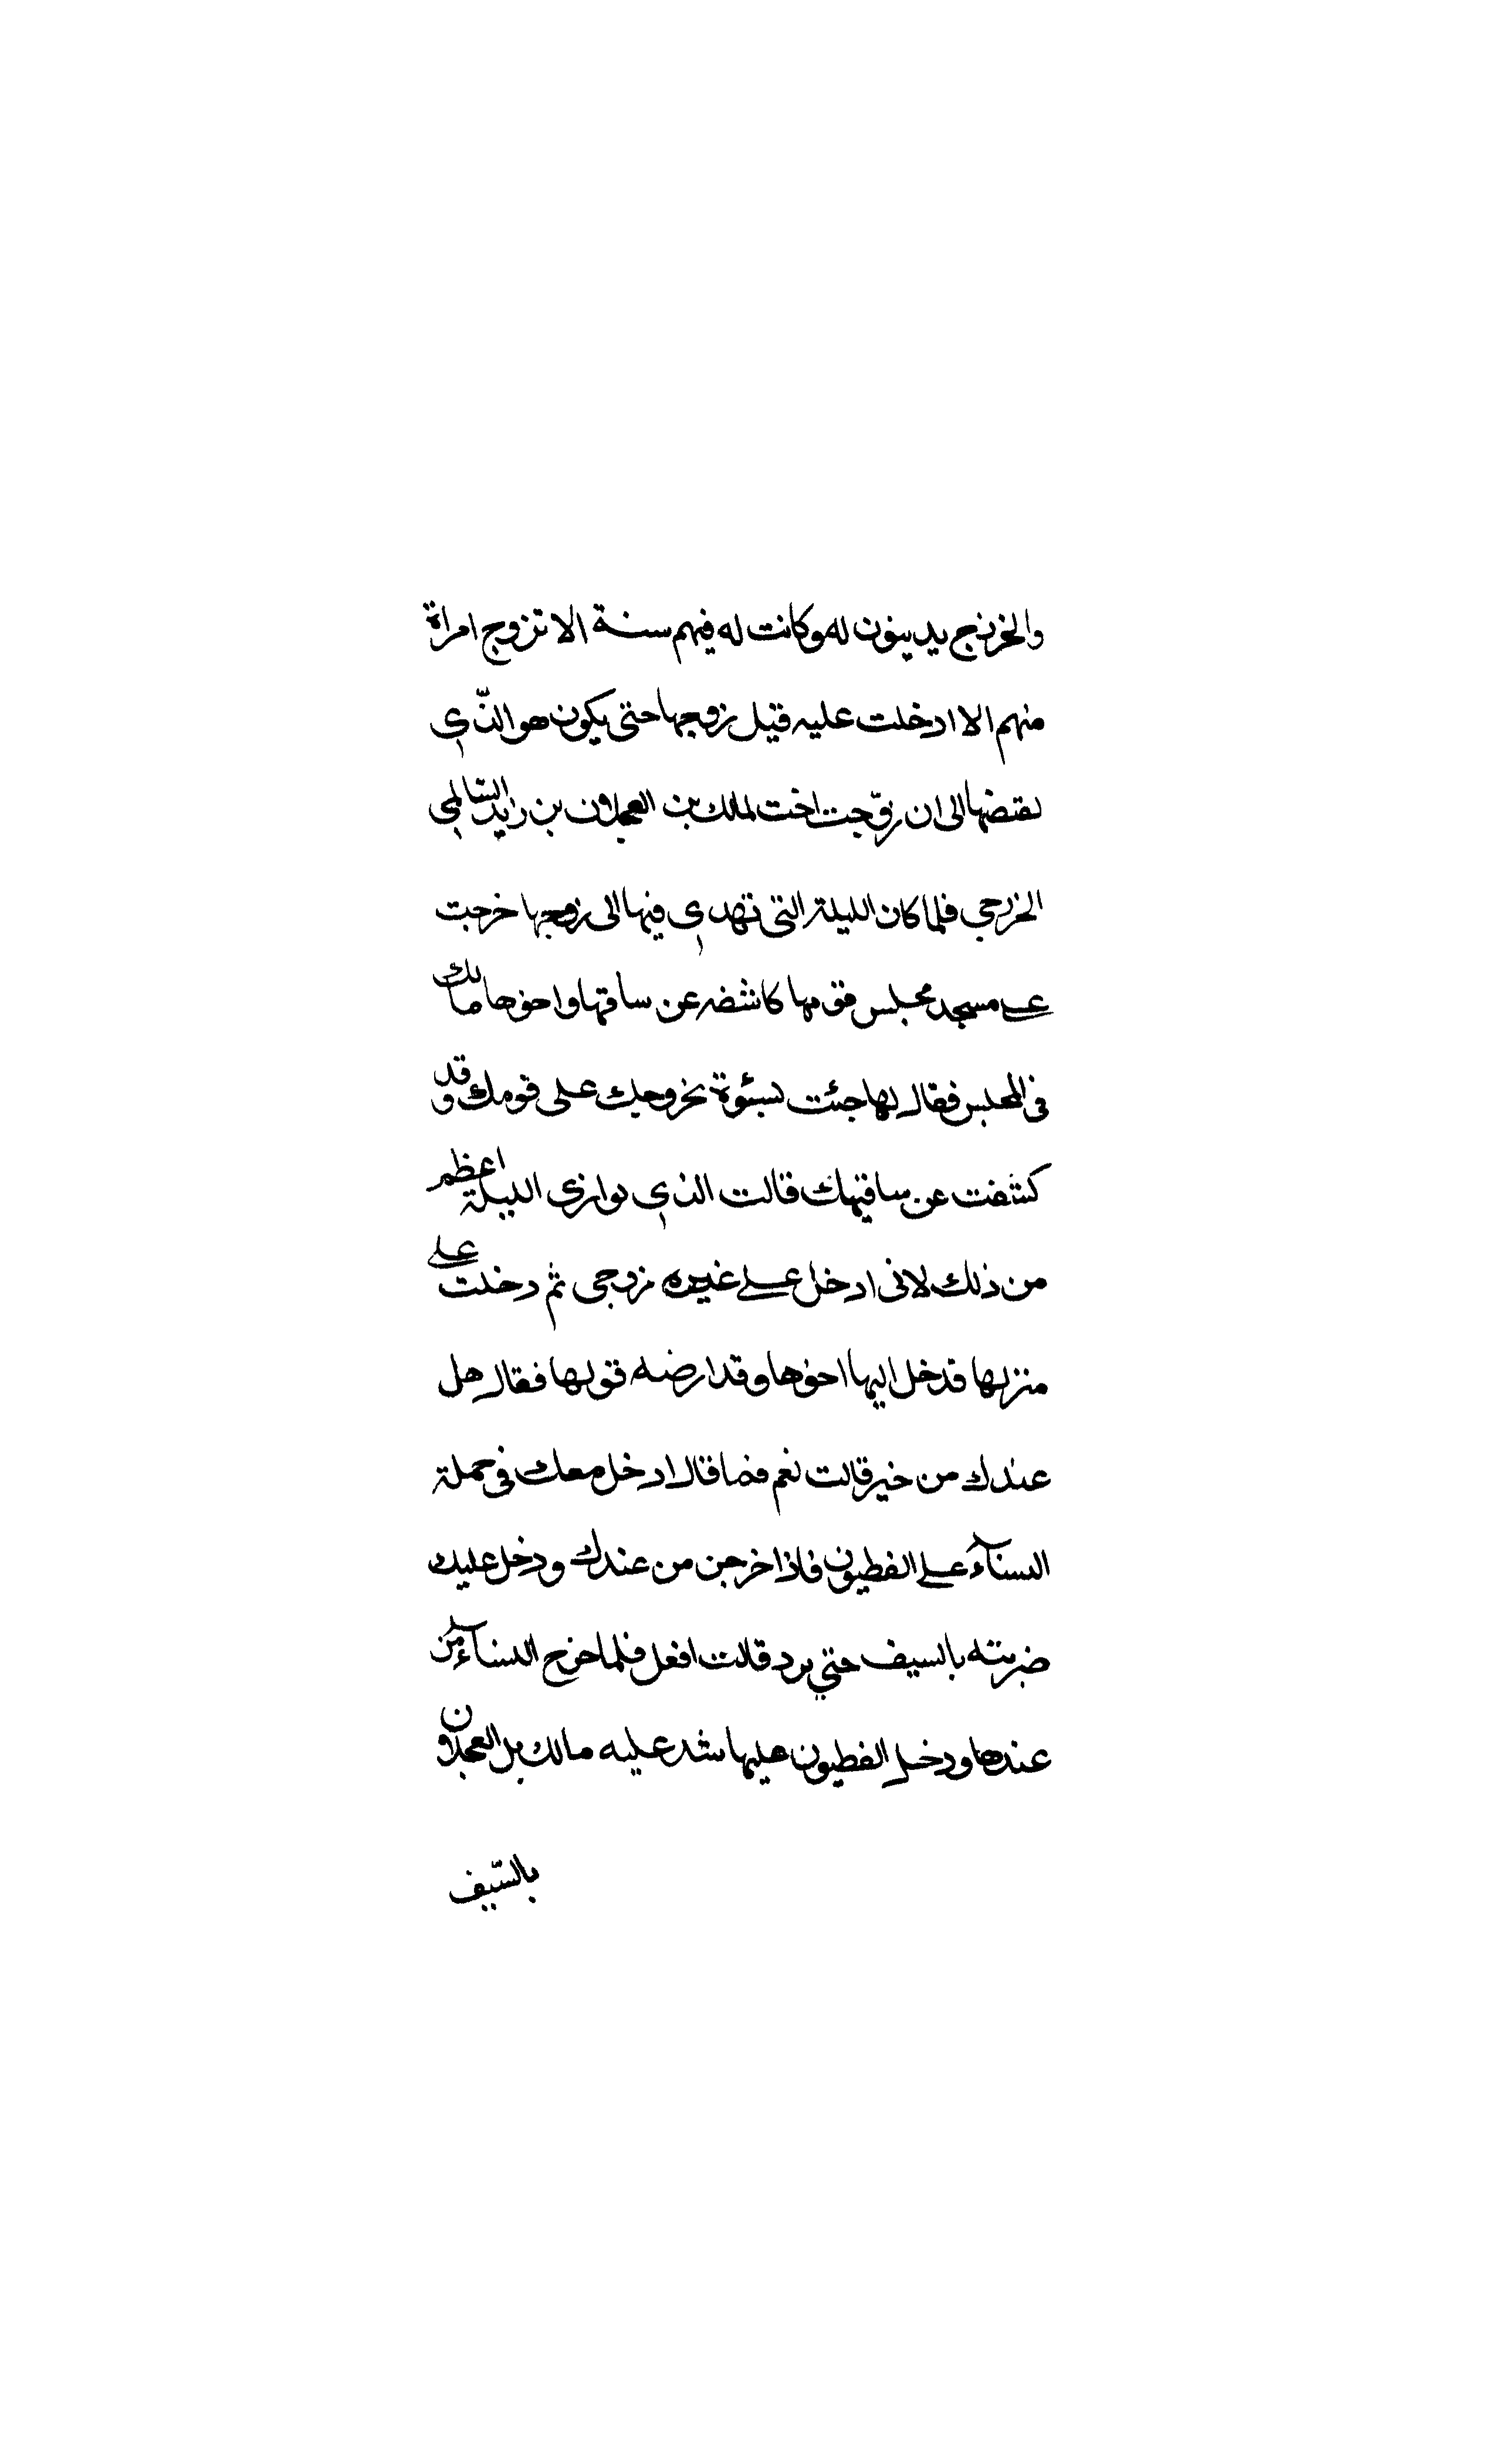 والخزرج يدينون له وكانت له فيهم سنة الا تزوج امراة
منهم الا ادخلت عليه قبل زوجها حتى يكون هو الذّي
يقتضها الى ان زوّجت اخت لمالك بن العجلان بن زايد السّالمي
الخزرجي فلما كان الليلة التي تهدي فيها الى زوجها خرجت
على مسجد مجلس قومها كاشفه عن ساقها واخوها مالك
في المجلس فقال لها جئت بسئوة بخروجك على قومك وقد
كشفت عن ساقيك قالت الذي يوارزي الليلة اعظم
من ذلك لانى ادخل على غيره زوجى ثم دخلت على
منزلها فدخل اليها اخوها وقد ارضه قولها فقال هل
عندك من خير قالت نعم فضا قال ادخل معك في جملة
النسآء على الفطيون فاذا خرجن من عندك ودخل عليك
ضربته بالسيف حتي يرد قالت افعل فلما خرج النسآء من
عندها ودخل الفطيون عليها شد عليه مالك بن العجلان
بالسّيف